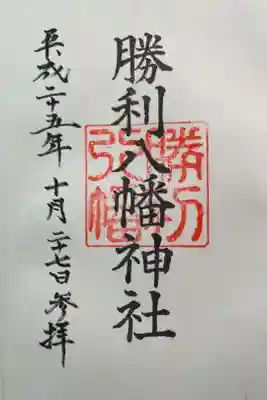 勝利八幡神社
平成二十五年 十月 二十七日参拝
勝利
八幡